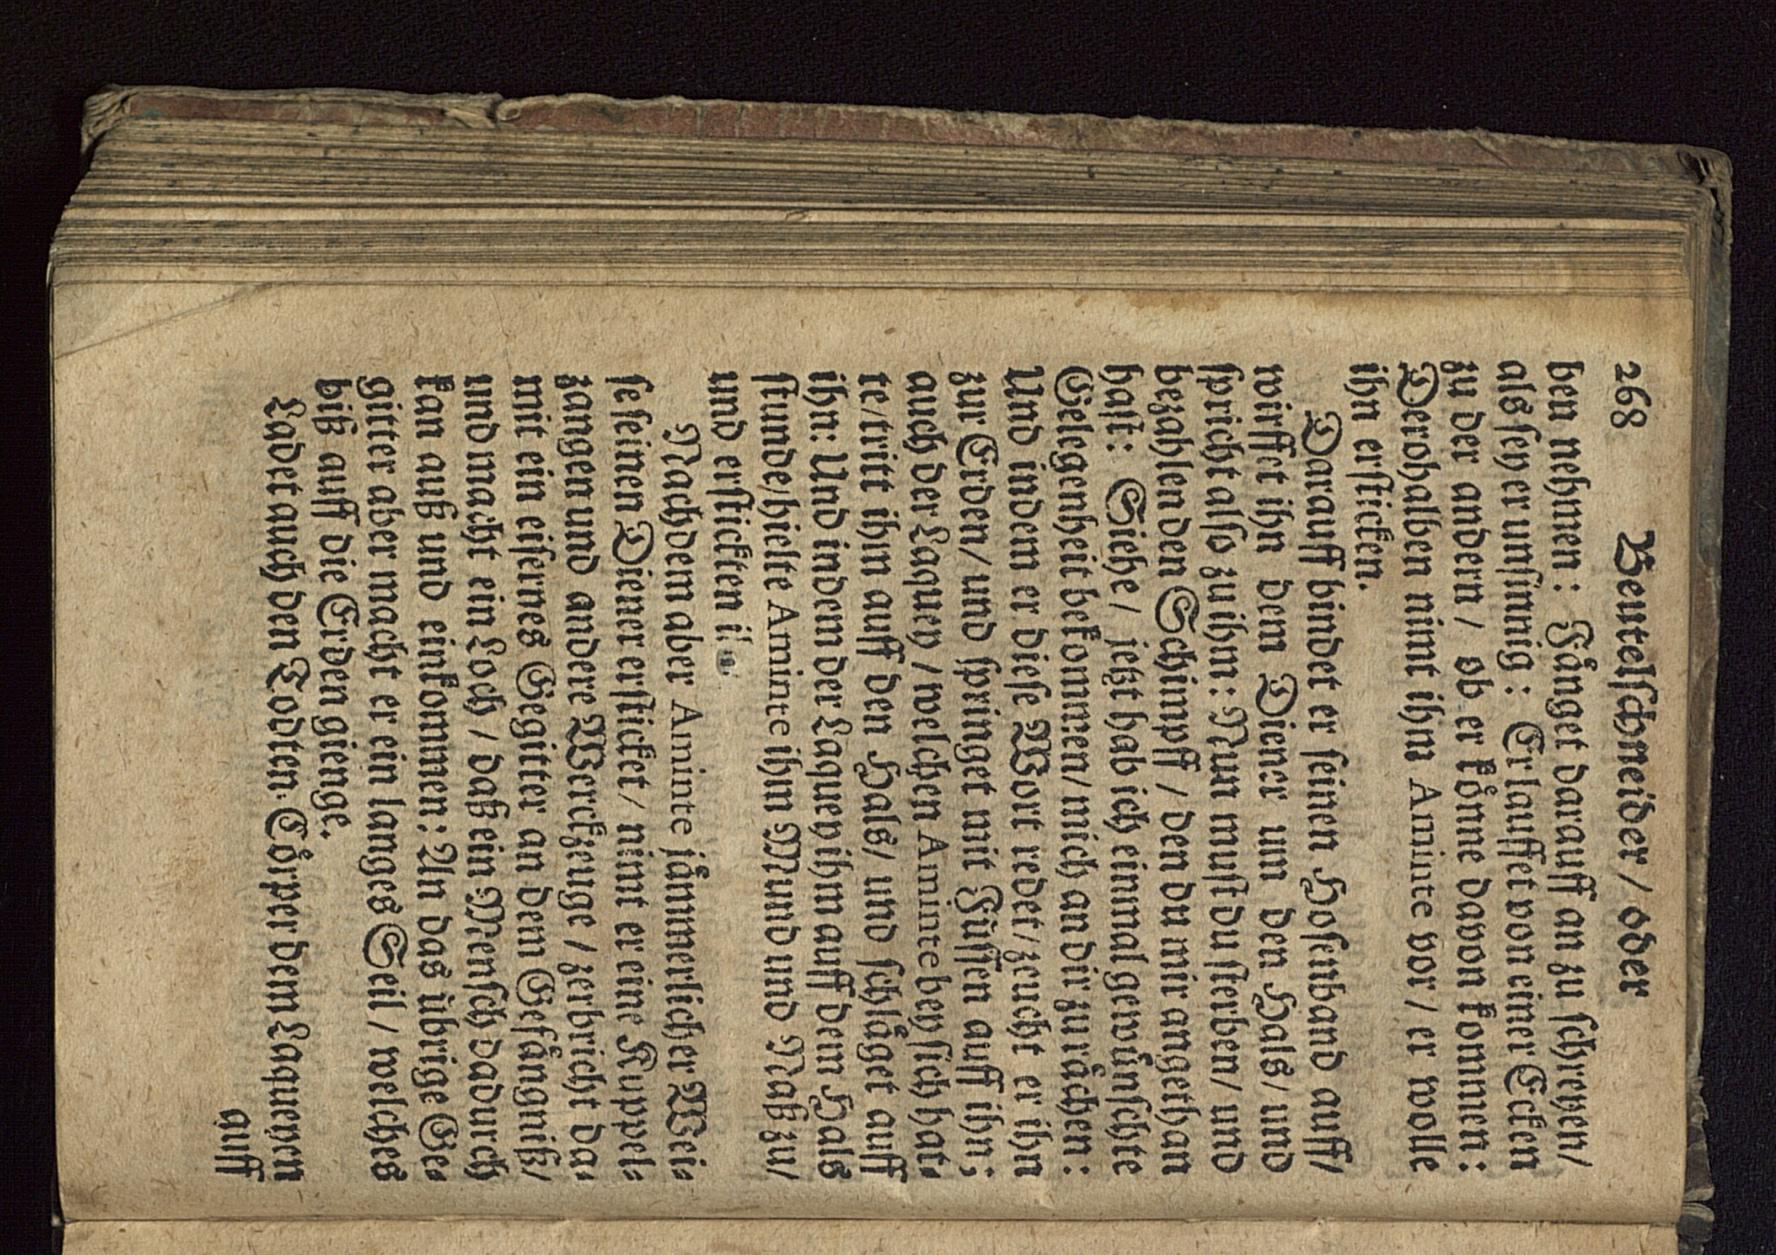 268 Beutelſchneider / oder
ben nehmen: Fånget darauff an zu ſchreyen/
als ſey er unſinnig: Er lauffet von einer Ecken
zu der andern / ob er kônne davon kommen:
Derohalben nimt ihm Aminte vor / er wolle
ihn erſticken.
Darauff bindet er ſeinen Hoſenband auff/
wirffet ihn dem Diener um den Hals / und
ſpricht alſo zu ihm: Nun muſt du ſterben / und
bezahlen den Schimpff / den du mir angethan
haſt: Siehe / jetzt hab ich einmal gewůnſchte
Gelegenheit bekommen / mich an dir zu råchen:
Und indem er dieſe Wort redet / zeucht er ihn
zur Erden / und ſpringet mit Fůſſen auff ihn;
auch der Laquey / welchen Aminte bey ſich hat-
te / tritt ihm auff den Hals / und ſchlåget auff
ihn: Und indem der Laquey ihm auff dem Hals
ſtunde / hielte Aminte ihm Mund und Naß zu /
und erſtickten i
Nachdem aber Aminte jåmmerlicher Wei-
ſe ſeinen Diener erſticket / nimt er eine Kuppel-
zangen und andere Werckzeuge / zerbricht da-
mit ein eiſernes Gegitter an dem Gefångniß /
und macht ein Loch / daß ein Menſch dadurch
kan auß und einkommen: An das ůbrige Ge-
gitter aber macht er ein langes Seil / welches
biß auff die Erden gienge.
Ladet auch den Todten-Cörper dem Laqueyen
auff